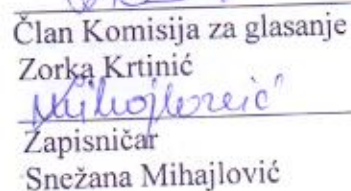 Član Komisija za glasanje
Zorka Krtinić
Mihajlović
Zapisničar
Snežana Mihajlović